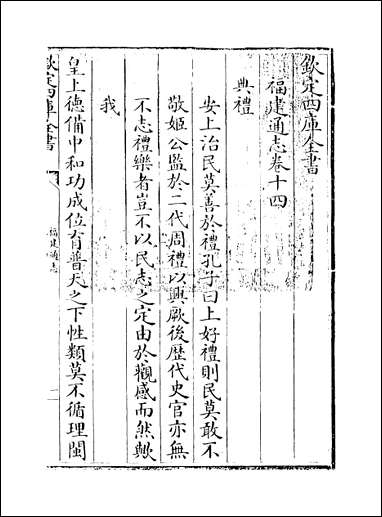 欽定四庫全書
福建通志卷十四
典禮
安上治民莫善於禮孔子曰上好禮則民莫敢不
敬姬公監於二代周禮以興厥後歴代史官亦無
不志禮樂者豈不以民志之定由於觀感而然歟
我
皇上德備中和功成位育普天之下性類莫不循理閩
欽定四庫全書
福建通志